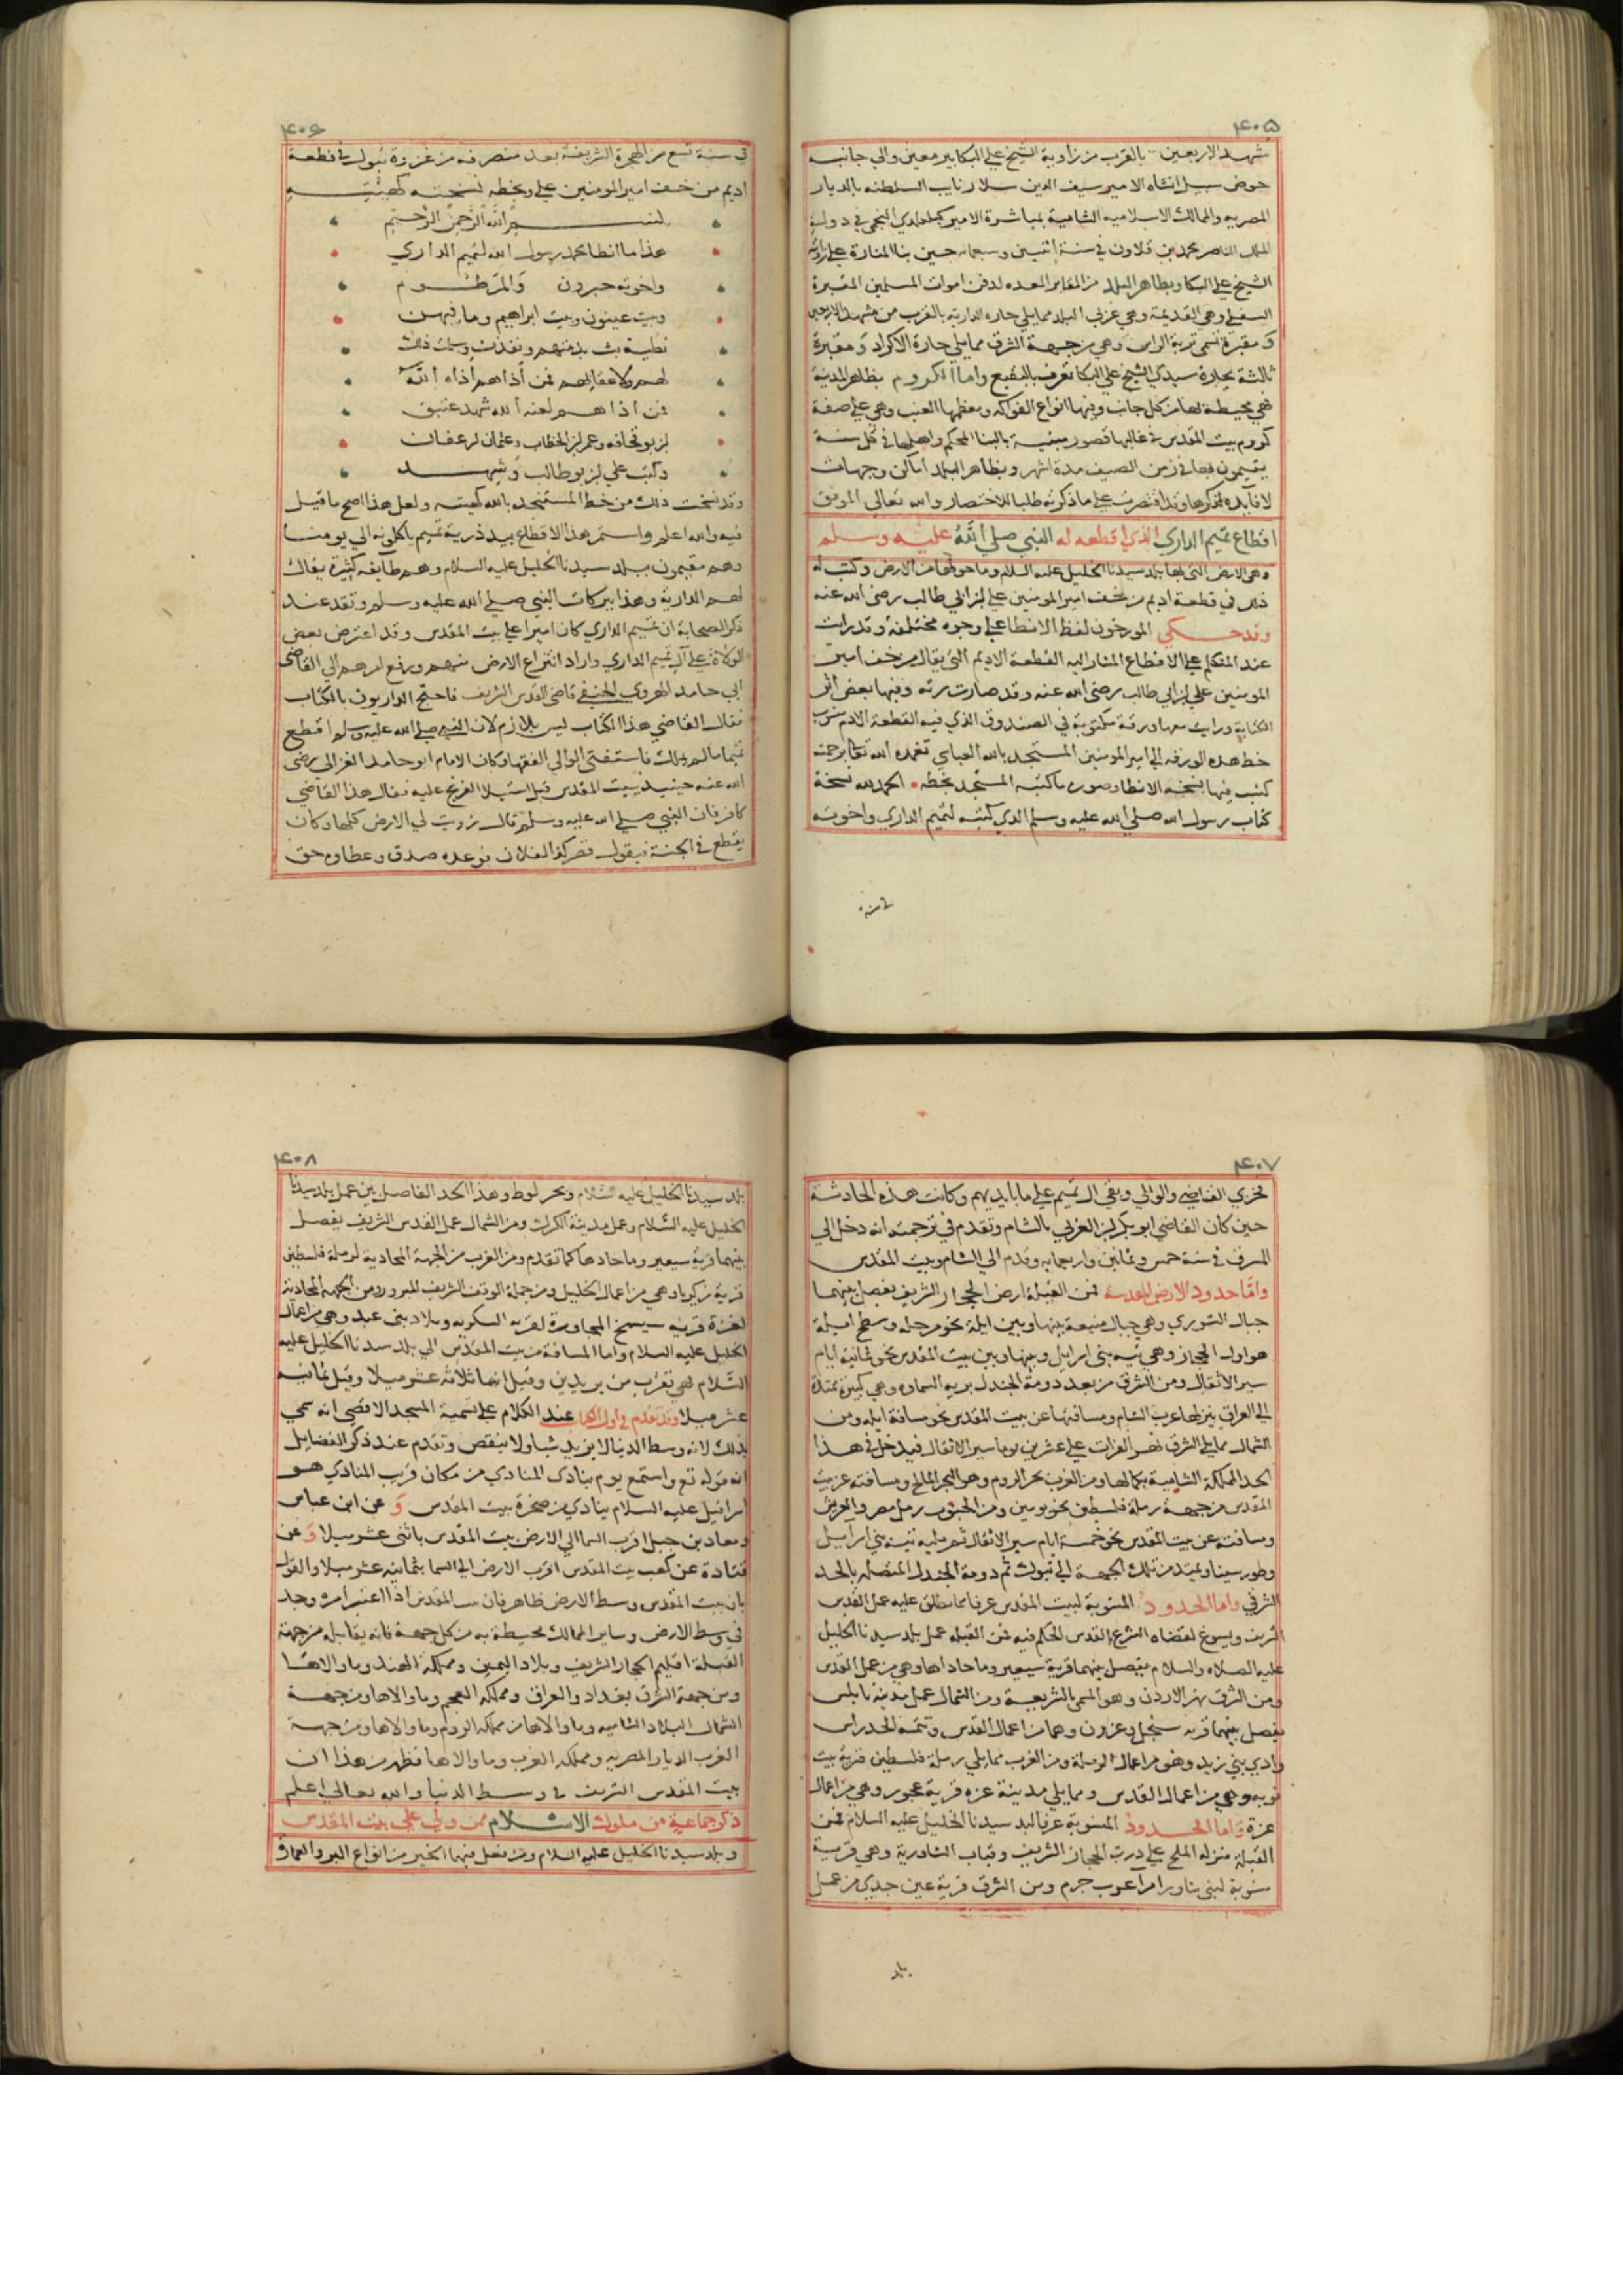 ۴۰۵
شهد الاربعين بالقرب من زاوية الشيخ علي البكا بير معين والي جانبه
حوض سبيل انشاه الامير سيف الدين سلار نايب السلطنه بالديار
المصريه والممالك الاسلاميه الشامية بمباشرة الامير كيكلدي النجمي في دولة
الملك الناصر محمد بن قلاون في سنة اثنين وسبعمايه حين بنا المنارة علي زاوية
الشيخ علي البكا وبظاهر البلد من المقابر المعده لدفن اموات المسلمين المقبرة
السفلي وهي القديمة وهي غربي البلد مما يلي حاره الداريه بالقرب من مشهد الاربعين
وَ مقبرة تسمى تربة الراس وهي من جهة الشرق مما يلي حارة الاكراد وَ مقبرة
ثالثة بحارة سيدي الشيخ علي البكا تعرف بالبقيع واما الكروم بظاهر المدينة
فهي محيطة بها من كل جانب وفيها انواع الفواكه ومعظمها العنب وهي علي صفة
كروم بيت المقدس في غالبها قصور مبنية بالبنا المحكم واهلها في كل سنة
يقيمون بها في زمن الصيف مدة اشهر وبظاهر البلد اماكن وجهات
لا فايده لذكرها وقد اقتصرت علي ما ذكرته طلبا للاختصار والله تعالي الموفق
اقطاع تميم الداري الذي اقطعه له النبي صلي اللَّهُ عليه وسلم
وهي الارض التي بها بلد سيدنا الخليل عليه السلام وما حولها من الارض وكتب له
ذلك في قطعة اديم من خف امير المومنين علي بن ابي طالب رضى الله عنه
وقد حكي المورخون لفظ الانطا علي وجوه مختلفة وقد رايت
عند المتكلم علي الاقطاع المشار اليه القطعة الاديم التي يقال من خف امير
المومنين علي بن ابي طالب رضى الله عنه وقد صارت رثه وفيها بعض اثر
الكتابة ورايت معها ورقة مكتوبة في الصندوق الذي فيه القطعة الادم منسوب
خط هذه الورقه الي امير المومنين المستنجد بالله العباسي تغمده الله تعا برحمته
كتب فيها نسخة الانطا وصورة ما كتبه المستنجد بخطه الحمد لله نسخة
كتاب رسول الله صلي الله عليه وسلم الذي كتبه لتميم الداري واخوته
۴۰۶
في سنة تسع من الهجرة الشريفة بعد منصرفه من غزوة تبوك في قطعة
اديم من خف امير المومنين علي وبخطه نسخته كهيئته
بسم اللَّه الرَّحمن الرَّحيم
هذا ما انطا محمد رسول الله لتميم الداري
واخوته حبرون وَالمَرطوم
وبيت عينون وبيت ابراهيم وما فيهن
نطية بت بذمتهم ونفذت وسلمت ذلك
لهم ولاعقابهم فمن أذاهم أذاه اللَّه
فمن اذاهم لعنه الله شهد عتيق
بن بو قحافه وعمر بن الخطاب وعثمان بن عفان
وكتب علي بن بو طالب وَشهد
وقد نسخت ذلك من خط المستنجد بالله كهيئته ولعل هذا اصح ما قيل
فيه والله اعلم واستمر هذا الاقطاع بيد ذرية تميم ياكلونه الي يومنا
وهم مقيمون ببلد سيدنا الخليل عليه السلام وهم طايفه كثيرة يقال
لهم الدارية وهذا ببركات النبي صلي الله عليه وسلم وتقد عند
ذكر الصحابة ان تميم الداري كان اميرا علي بيت المقدس وقد اعترض بعض
الولاة علي آل تميم الداري واراد انتزاع الارض منهم ورفع امرهم الي القاضي
ابي حامد الهروي الحنفي قاضى القدس الشريف فاحتج الداريون بالكتاب
فقال القاضي هذا الكتاب ليس بلازم لان النبي صلي الله عليه وسلم اقطع
تميما ما لم يملك فاستفتى الوالي الفقها وكان الامام ابو حامد الغزالي رضى
الله عنه حينيذ ببيت المقدس قبل استيلا الفرنج عليه فقال هذا القاضي
كافر فان النبي صلي الله عليه وسلم قال زويت لي الارض كلها وكان
يقطع في الجنة فيقول قصر كذا لفلان فوعده صدق وعطاوه حق
۴۰۷
فخزي القاضي والوالي وبقي آل تميم علي ما بايديهم وكانت هذه الحادثة
حين كان القاضي ابو بكر بن العربي بالشام وتقدم في ترجمته انه دخل الي
المشرق في سنة خمس وثمانين واربعمايه وقدم الي الشام وبيت المقدس
وامّا حدود الارض المقدسه فمن القبلة ارض الحجاز الشريف يفصل بينهما
جبال الشوري وهي جبال منيعة بينها وبين ايلة نحو مرحله وسطح ايلة
هو اول الحجاز وهي تيه بنى اسرايل وبينها وبين بيت المقدس نحو ثمانية ايام
سير الاثقال ومن الشرق من بعد دومة الجندل بريه السماوه وهي كبيرة ممتدة
الي العراق ينزلها عرب الشام ومسافتها عن بيت المقدس نحو مسافة ايله ومن
الشمال مما يلي الشرق نهر الفرات علي عشرين يوما سير الاثقال فيدخل في هذا
الحد المملكة الشامية بكمالها ومن الغرب بحر الروم وهو البحر المالح ومسافته عن بيت
المقدس من جهة رملة فلسطين نحو يومين ومن الجنوب رمل مصر والعريش
ومسافته عن بيت المقدس نحو خمسة ايام سير الاثقال ثم يليه تيه بني اسرايل
وطور سينا ويمتد من تلك الجهة الي تبوك ثم دومة الجندل المتصلة بالحد
الشرقي واما الحدود المنسوبة لبيت المقدس عرفا مما يطلق عليه عمل القدس
الشريف ويسوغ لقضاه الشرع القدس الحكم فيه فمن القبله عمل بلد سيدنا الخليل
عليه الصلاه والسلام يفصل بينهما قرية سيعير وما حاداها وهي من عمل القدس
ومن الشرق نهر الاردن وهو المسمى بالشريعة ومن الشمال عمل مدينة نابلس
يفصل بينهما قريه سنجل وعزون وهما من اعمال القدس وتتمة الحد راس
وادي بني زيد وهو من اعمال الرملة ومن الغرب مما يلي رملة فلسطين قرية بيت
نوبه وهي من اعمال القدس ومما يلي مدينة غزه قرية عجور وهي من اعمال
غزة وَاما الحدود المنسوبة عرفا لبلد سيدنا الخليل عليه السلام فمن
القبلة منزله الملح علي درب الحجاز الشريف وقباب الشاورية وهي قرية
منسوبة لبنى شاور امرآ عرب جرم ومن الشرق قرية عين جدي من عمل
بلد
۴۰۸
بلد سيدنا الخليل عليه السّلام وبحر لوط وهذا الحد الفاصل بين عمل بلد سيدنا
الخليل عليه السّلام وعمل مدينة الكرك ومن الشمال عمل القدس الشريف يفصل
بينهما قرية سيعير وما حادها كما تقدم ومن الغرب من الجهة المحادية لرملة فلسطين
قرية زكريا وهي من اعمال الخليل ومن جملة الوقف الشريف المبرور ومن الجهة المحادية
لغزة قريه سيمسخ المجاورة لقريه السكريه وبلاد بنى عبد وهي من اعمال
الخليل عليه السلام واما المسافة من بيت المقدّس الي بلد سيدنا الخليل عليه
السّلام فهي تقرب من بريدين وقيل انها ثلاثه عشر ميلا وقيل ثمانيه
عشر ميلا وقد تقدم في اول الكتاب عند الكلام علي تسمية المسجد الاقصي انه سمي
بذلك لانه وسط الدنيا لا يزيد شيا ولا ينقص وتقدم عند ذكر الفضايل
انه قوله تع واستمع يوم ينادى المنادي من مكان قريب المنادي هو
اسرافيل عليه السلام ينادي من صخرة بيت المقدس وَ عن ابن عباس
ومعاد بن جبل اقرب السما الي الارض بيت المقدس باثنى عشر ميلا وَ عن
قتادة عن كعب بيت المقدس اقرب الارض الي السما بثمانيه عشر ميلا والقول
بان بيت المقدس وسط الارض ظاهر فان بيت المقدس اذا اعتبر امره وجد
في وسط الارض وساير الممالك محيطة به من كل جهة فانه يقابله من جهة
القبلة اقليم الحجاز الشريف وبلاد اليمين ومملكة الهند وما والاها
ومن جهة الشرق بغداد والعراق ومملكة العجم وما والاها ومن جهة
الشمال البلاد الشاميه وما والاها من مملكة الروم وما والاها ومن جهة
الغرب الديار المصريه ومملكة الغرب وما والاها فظهر من هذا ان
بيت المقدس الشريف في وسط الدنيا والله تعالي اعلم
ذكر جماعة من ملوك الاسلام ممن ولي علي بيت المقدس
وبلد سيدنا الخليل عليه السلام ومن فعل فيها الخير من انواع البر والعمارة